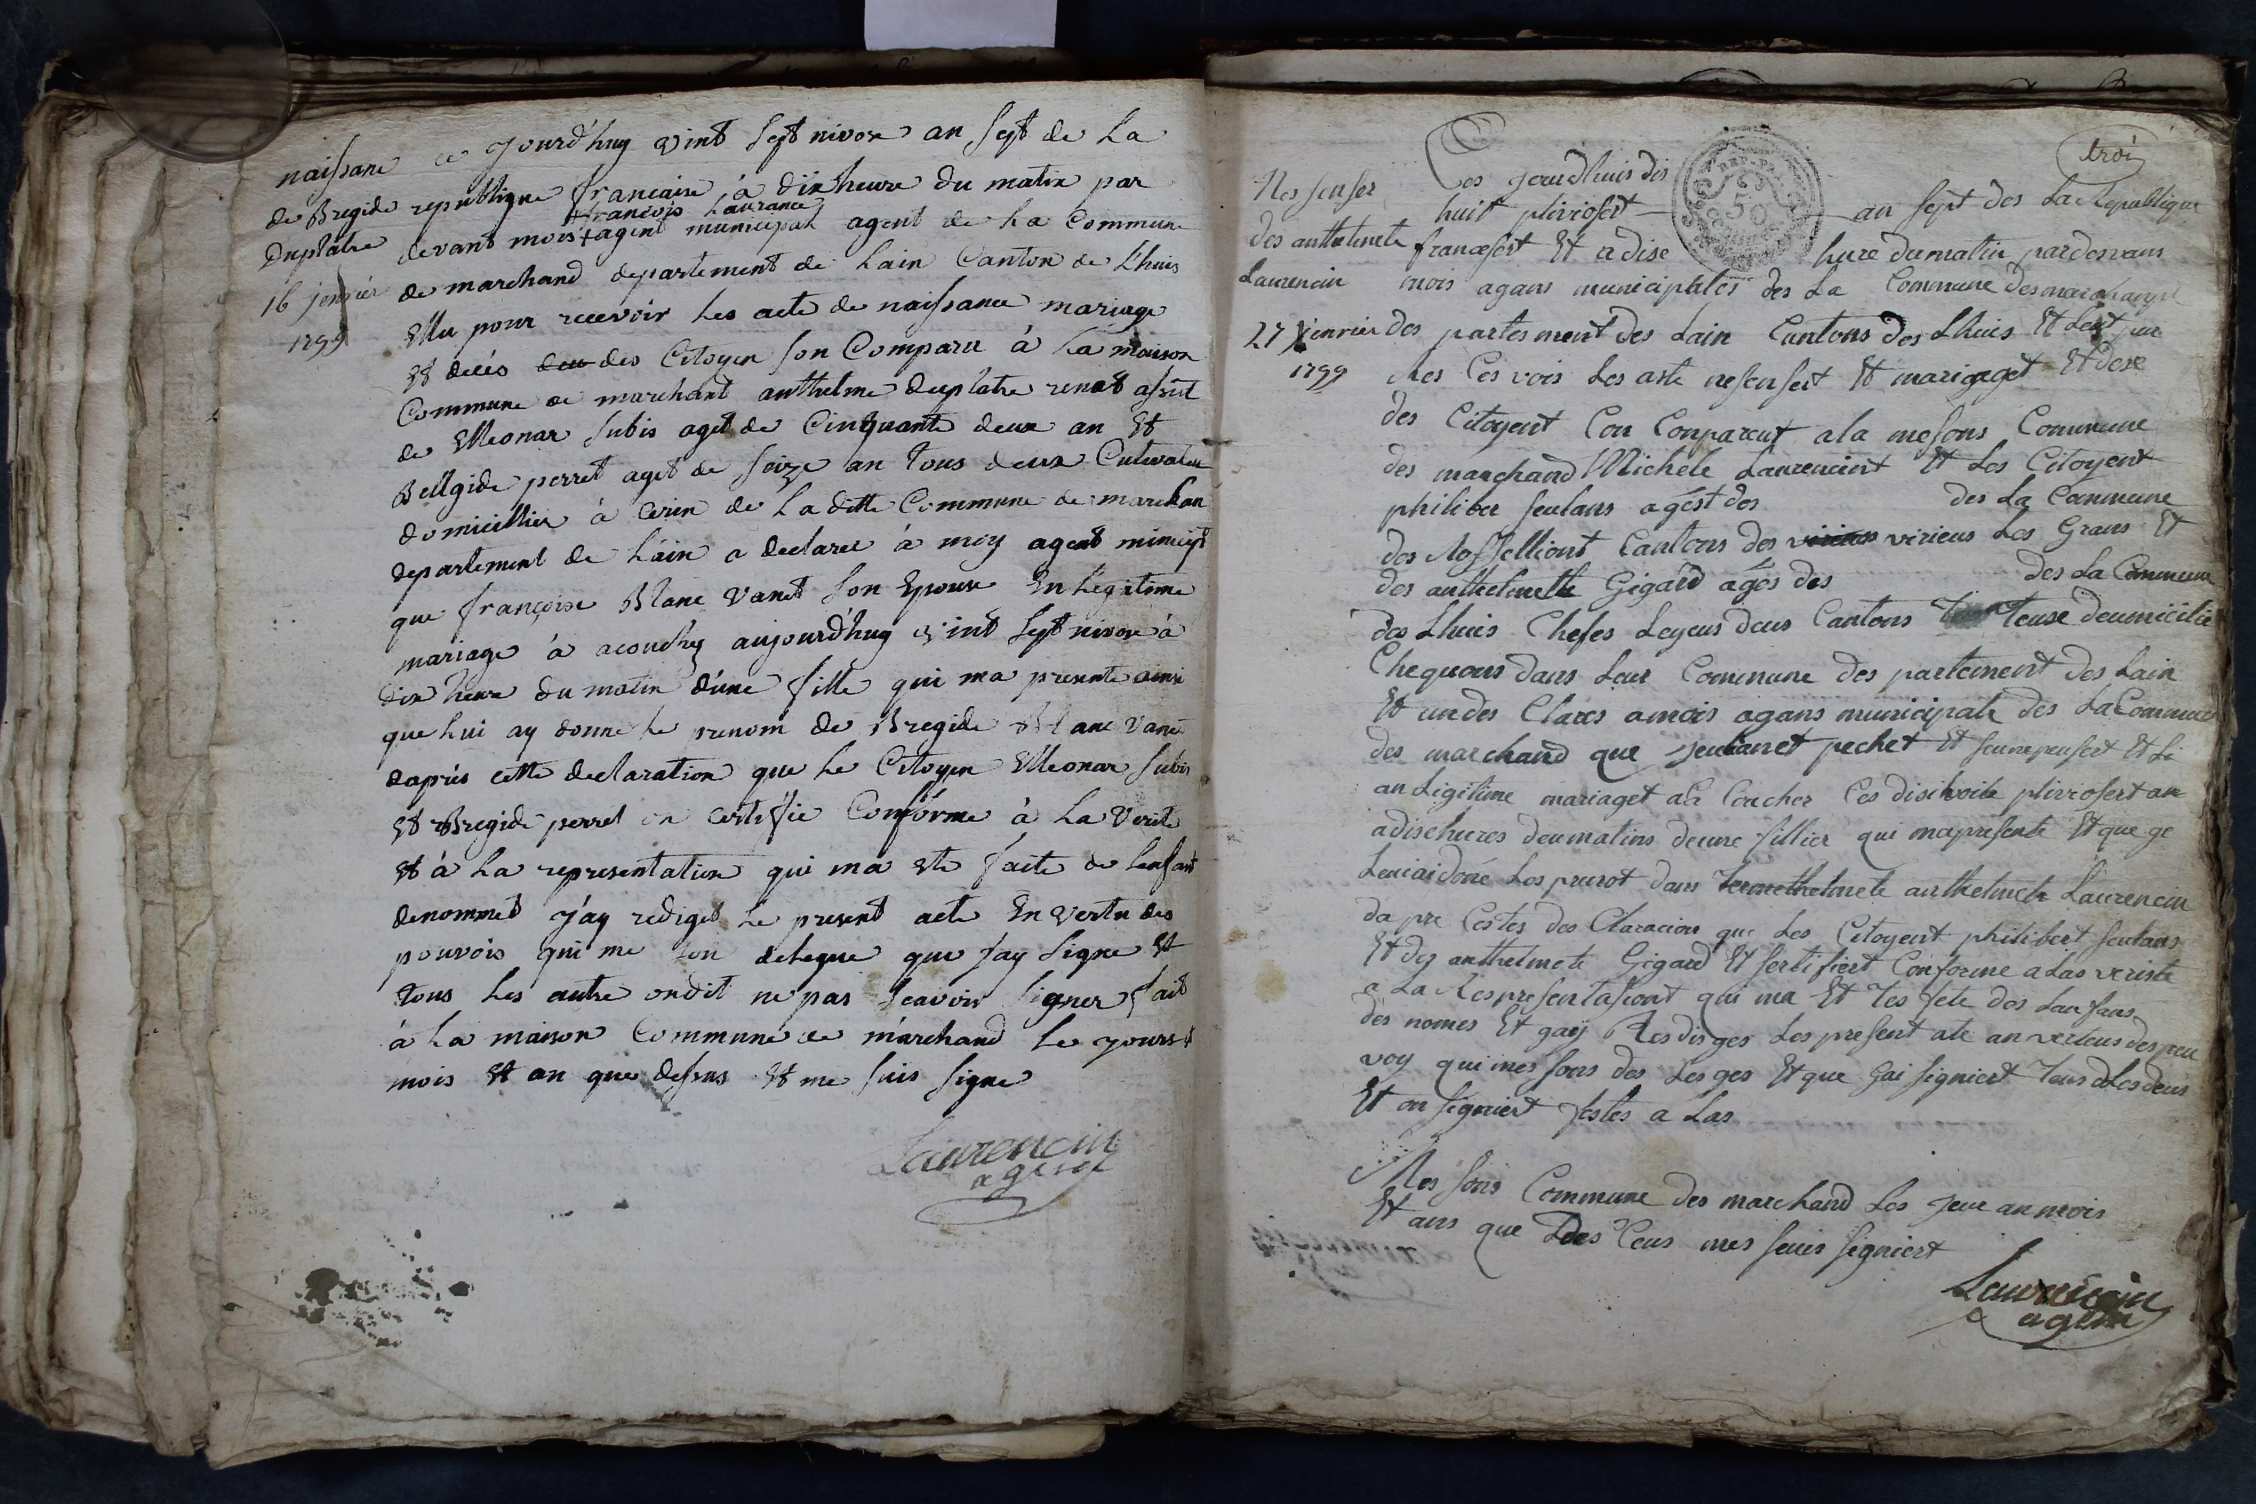 naissance
de Bregide
Duplatre
16 jenvier
1799
ce jourd'huy vint sept nivose an sept de La
republique francaise, à dix heure du matin par
françois Laurancin
devant mois + agent municipal agent de La Commune
de marchand departement de Lain Canton de Lhuis
Ellu pour recevoir Les acte de naissance mariage
Et decés des Citoyen son Comparu à La maison
Commune de marchant anthelme duplatre
de Elleonar subis aget de Cinquante deux an Et
Bellgide perret aget de seize an tous deux Cultivateur
domicillier à cerin de La ditte Commune de marchan
departement de Lain a declaree à moy agent
que françoise Blanc Vanet son Epouse En Legitime
mariage à acouchey aujourd'huy vint sept nivose à
dix heure du matin d'une fille qui ma presente ainsi
que Lui ay donne Le prenom de Bregide Blanc Vanet
daprés cette declaration que Le Citoyen Elleonar subis
Et Bregide perret on certiffie Conforme à La Verite
Et à La representation qui ma ete faite de Lenfant
denommet j'ay rediget Le present acte En vertu des
pouvois qui me son delegue que jay signe Et
tous Les autre ondit ne pas scavoir signer fait
à La maison Commune de marchand Le yours
mois Et an que dessus Et me suis signe
Laurencin
agent
troi
Nessenser
des anthelmete
Laurencin
27 jenvier
1799
Ces jeurdhuis dis
huit pliviosert — an sept des La Republique
francesert Et a dise hure du matin pardesvans
mois agans municipales des La Commune des marchand
des partesment des Lain Cantons des Lhuis Et Leut pur
Res Ces vois Les aste nesensert Et mariaget Et dese
des Citoyent Con Conparent a la mesons Commune
des marchand Michele Laurencint Et Les Citoyent
philiber seulans agést des des La Commune
des Rossellient Cantons des virieus Les Grans Et
des anthelmette Gigard agés des des La Commune
des Lhuis Chefes Leyeus deus Cantons Teuse deumicilie
Chequons dans Leur Commune des partement des Lain
Et undes Clares amois agans municipale des La Commune
des marchand que jeulianet pechet Et seunepeusert Et Li
an Ligitime mariaget aa Coucher Ces disihuite pliviosert an
adisehures deumatins deune fillier qui ma presente Et que ge
Leuiaidoné Les prenot dans anthelmete Laurencin
dapre Cestes des Claracion que Les Citoyent philibert seulans
Et des anthelmete Gigard Et sertifiert Conforme a Las veriste
a La Respresentasiont qui ma Et Tes fete des Lanfans
des nomes Et gaiy Resdisges Les present ate an verteus des peu
voy qui mes sons des Les ges Et que gai signiert Teus Les deus
Et on signiert festes a Las
Mes sons Commune des marchand Les jeur an mois
Et ans que Des Ceus mes seuis signiert
Laurencin
agent